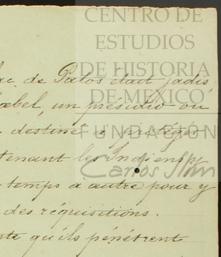 CENTRO DE
ESTUDIOS
DE HISTORIA
DE MEXICO
FUNDACIÓN
Carlos Slim
de Patos était jadis
un présidio ou
destiné à
tenant les Indiens
temps à autre pour y
des réquisitions.
qu'ils pénètrent